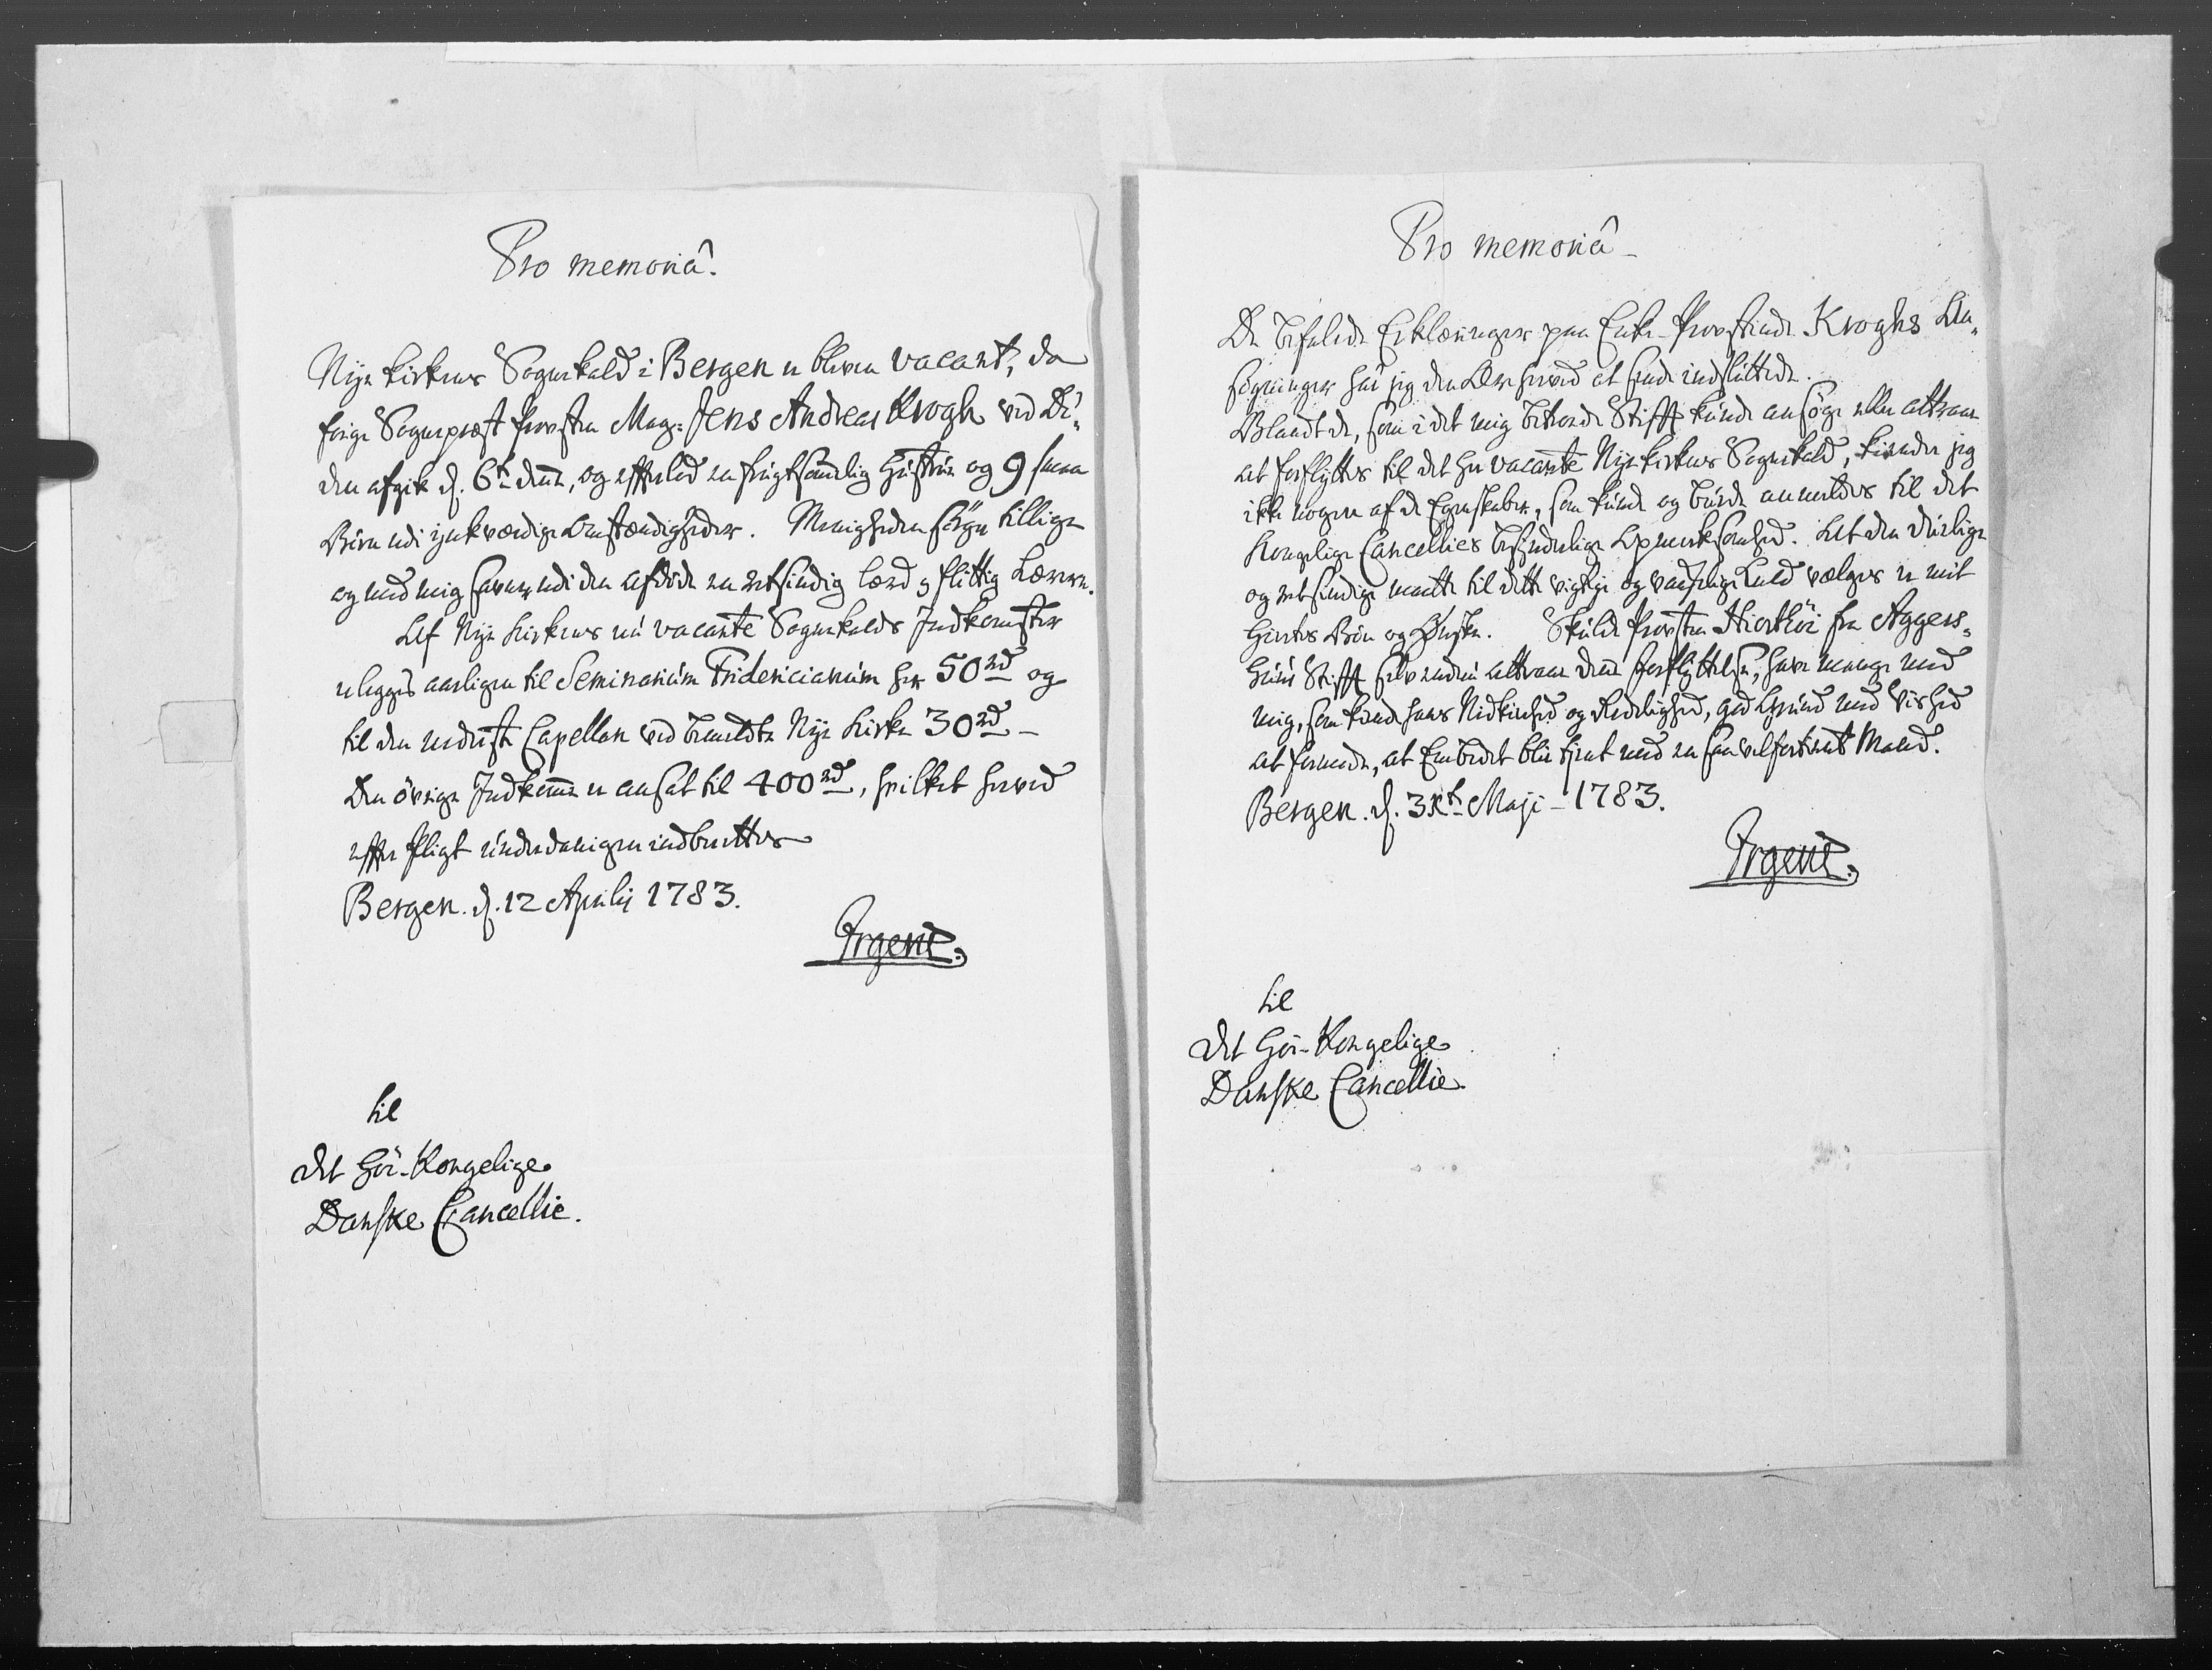 Pro memoriâ.
Nye Kirkens Sognekald i Bergen er bleven vacant, da
forige Sognepræst Provsten Mag: Jens Andreas Krogh ved Dö-
den afgik d. 6te denne, og efterlod en frugtsommelig Hustrue og 9 smaa
Börn udi ynkværdige Omstændigheder. Menigheden sörger tillige
og med mig savner udi den afdöde en retsindig lærd og flittig Lærere.
Af Nye Kirkens nu vacante Sognekalds Indkomster
erlegges aarligen til Seminarium Fridericianum her 50 rd og
til den nederste Capellan ved bemeldte Nye Kirke 30 rd -
Den övrige Indkomme er ansat til 400 rd, hvilket herved
efter Pligt underdanigen indberettes
Bergen. d. 12 Aprilij 1783.
Irgens.
til
Det Höi-Kongelige
Danske Cancellie.
Pro memoriâ -
De befalede Erklæringer paa Enke-Provstinde Kroghs An-
søgninger har jeg den Ære herved at sende indsluttede.
Blandt de, som i det mig betroede Stifft kunde ansöge eller attraae
at forflyttes til det her vacante Nye Kirkes Sognekald, kiender jeg
ikke nogen af de Egenskaber, som kunde og burde anmeldes til det
Kongelige Cancellies besynderlige Opmerksomhed. At den duelige
og retsindige maatte til dette vigtige og vanskelige Kald vælges er mit
Hiertes Bön og Önske. Skulde Provsten Hiorthöi fra Aggers-
huus Stifft selv endnu attraae denne Forflyttelse, have mange med
mig, som kiende hans Nidkierhed og Redelighed, god Grund med Vished
at formode, at Embedet blir tient med en saa velfortient Mand.
Bergen. d. 3die Maji - 1783.
Irgens.
til
Det Höi-Kongelige
Danske Cancellie.